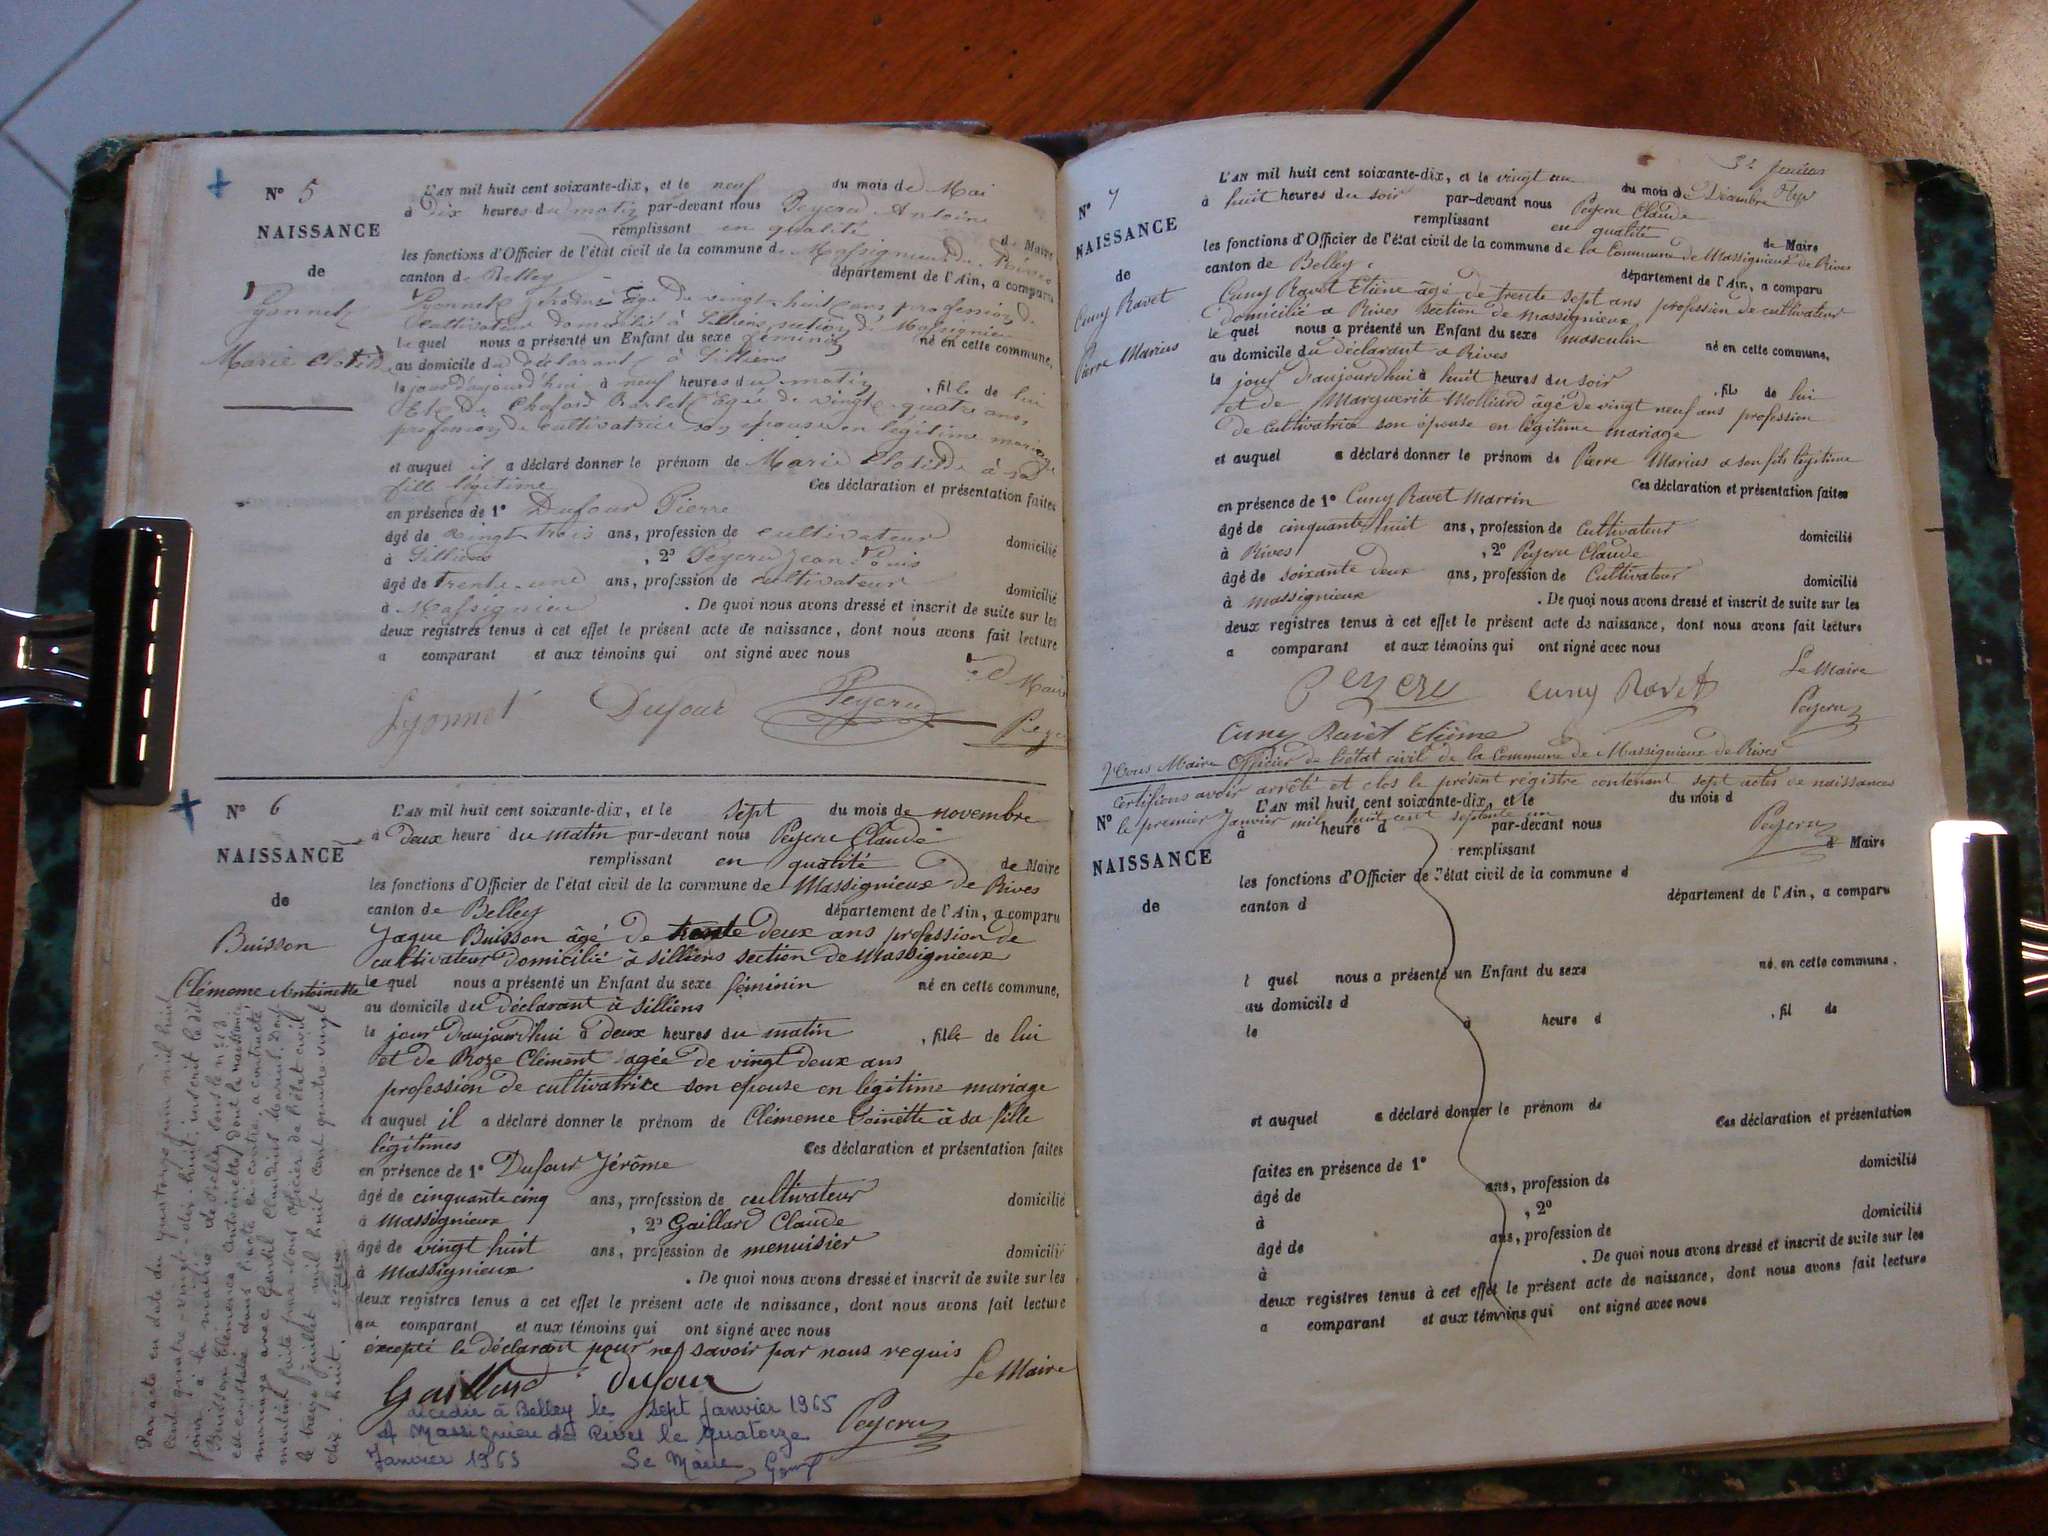 N° 5
NAISSANCE
de
Lyonnet
Marie Clotilde
L'AN mil huit cent soixante-dix, et le neuf du mois de Mai
à Dix heures du matin par-devant nous Peyeru Antoine
remplissant en qualité de Maire
les fonctions d'Officier de l'état civil de la commune de Massignieu de Rives
canton de Belley département de l'Ain, a comparu
Lyonnet Jérôme âgé de vingt-huit ans profession de
cultivateur domicilié à Silliens section de Massignieu
le quel nous a présenté un Enfant du sexe féminin né en cette commune,
au domicile du déclarant à Silliens
le jour d'aujourd'hui à neuf heures du matin , fille de lui
Et de Barlet Agée de vingt-quatre ans,
profession de cultivatrice son épouse en légitime mariage
et auquel il a déclaré donner le prénom de Marie Clotilde à sa
fille légitime Ces déclaration et présentation faites
en présence de 1° Dufour Pierre
âgé de vingt trois ans, profession de cultivateur domicilié
à Silliens , 2° Peyeru Jean Louis
âgé de trente-une ans, profession de cultivateur domicilié
à Massignieu . De quoi nous avons dressé et inscrit de suite sur les
deux registres tenus à cet effet le présent acte de naissance, dont nous avons fait lecture
a comparant et aux témoins qui ont signé avec nous
Le Maire
Lyonnet Dufour Peyeru
N° 6
NAISSANCE
de
Buisson
Clémeme Antoinette
L'AN mil huit cent soixante-dix, et le sept du mois de novembre
à deux heure du matin par-devant nous Peyeru Claude
remplissant en qualité de Maire
les fonctions d'Officier de l'état civil de la commune de Massignieux de Rives
canton de Belley département de l'Ain, a comparu
Jaque Buisson âgé de trente deux ans profession de
cultivateur domicilié à silliens section de Massignieux
le quel nous a présenté un Enfant du sexe féminin né en cette commune,
au domicile du déclarant à silliens
le jour d'aujourd'hui à deux heures du matin , fille de lui
et de Roze Clément agée de vingt deux ans
profession de cultivatrice son epouse en légitime mariage
et auquel il a déclaré donner le prénom de Clémeme Toinette à sa fille
légitimes Ces déclaration et présentation faites
en présence de 1° Dufour Jérôme
âgé de cinquante cinq ans, profession de cultivateur domicilié
à Massignieux , 2° Gaillard Claude
âgé de vingt huit ans, profession de menuisier domicilié
à Massignieux . De quoi nous avons dressé et inscrit de suite sur les
deux registres tenus à cet effet le présent acte de naissance, dont nous avons fait lecture
au comparant et aux témoins qui ont signé avec nous
éxcepté le déclarant pour ne savoir par nous requis
Le Maire
Gaillard Dufour
Peyeru
décédée à Belley le sept Janvier 1965
A Massignieu de Rives le quatorze
Janvier 1965 Le Maire
Par acte en date du quatorze juin mil huit
cent quatre-vingt-dix-huit, inscrit le dit
jour à la mairie de Belley sous le n°
Buisson Clémence Antoinette, dont la naissance
est constatée dans l'acte ci-contre, a contracté
mariage avec Gentil Claudius Marius. Pour
mention faite par Nous officier de l'état civil
le treize juillet mil huit cent quatre vingt
dix huit.
N° 7
NAISSANCE
de
Cuny Ravet
Pierre Marius
L'AN mil huit cent soixante-dix, et le vingt un du mois de Décembre
à huit heures du soir par-devant nous Peyeru Claude
remplissant en qualité de Maire
les fonctions d'Officier de l'état civil de la commune de la Commune de Massignieux de Rives
canton de Belley. département de l'Ain, a comparu
Cuny Ravet Etiène âgé de trente sept ans profession de cultivateur
domicilié a Rives Section de massignieux
le quel nous a présenté un Enfant du sexe masculin né en cette commune,
au domicile du déclarant a Rives
le jour d'aujourd'hui à huit heures du soir , fils de lui
et de Marguerite Molliard âgé de vingt neuf ans profession
de cultivatrice son épouse en légitime mariage
et auquel a déclaré donner le prénom de Pierre Marius a son fils légitime
Ces déclaration et présentation faites
en présence de 1° Cuny Ravet Marrin
âgé de cinquante huit ans, profession de cultivateur domicilié
à Rives , 2° Peyeru Claude
âgé de soixante deux ans, profession de cultivateur domicilié
à massignieux . De quoi nous avons dressé et inscrit de suite sur les
deux registres tenus à cet effet le présent acte de naissance, dont nous avons fait lecture
a comparant et aux témoins qui ont signé avec nous
Le Maire
Peyeru Cuny Ravet Peyeru
Cuny Ravet Etiène
Nous Maire Officier de l'état civil de la Commune de Massignieux de Rives
Certifions avoir arrêté et clos le présent régistre contenant sept actes de naissances
le premier Janvier mil huit cent septante un
Peyeru
N°
NAISSANCE
de
L'AN mil huit cent soixante-dix, et le du mois d
à heure d par-devant nous
remplissant d Maire
les fonctions d'Officier de l'état civil de la commune d
canton d département de l'Ain, a comparu
l quel nous a présenté un Enfant du sexe né en cette commune,
au domicile d
le à heure d , fil de
et auquel a déclaré donner le prénom de
Ces déclaration et présentation
faites en présence de 1°
âgé de ans, profession de domicilié
à , 2°
âgé de ans, profession de domicilié
à . De quoi nous avons dressé et inscrit de suite sur les
deux registres tenus à cet effet le présent acte de naissance, dont nous avons fait lecture
a comparant et aux témoins qui ont signé avec nous